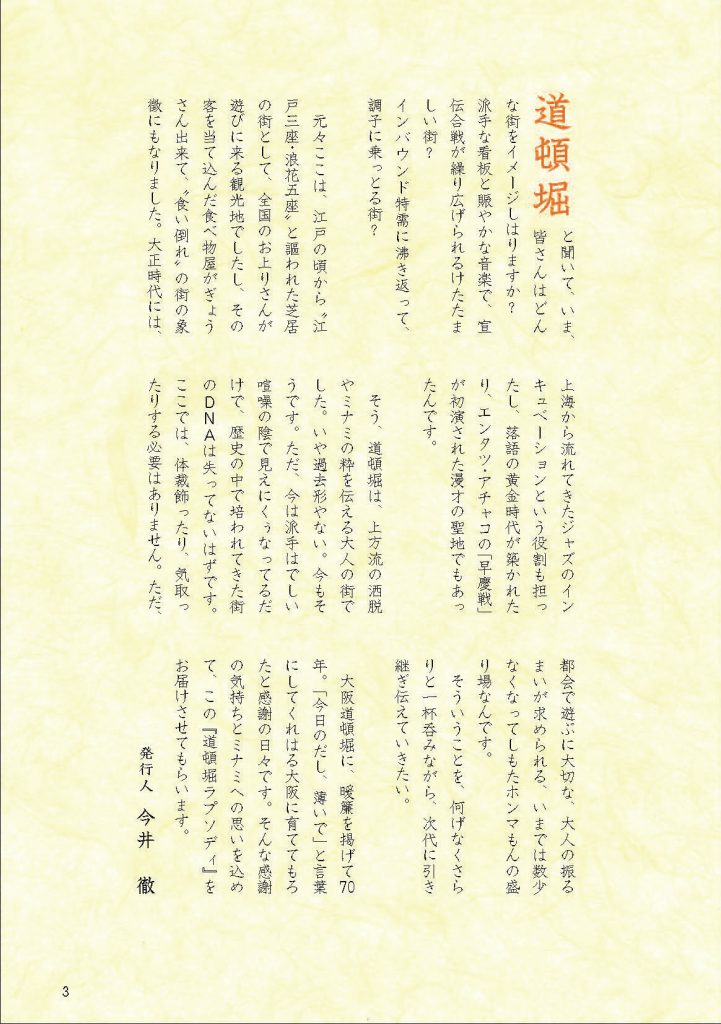 道頓堀
と聞いて、いま、
皆さんはどん
な街をイメージしはりますか?
派手な看板と賑やかな音楽で、宣
伝合戦が繰り広げられるけたたま
しい街?
インバウンド特需に沸き返って、
調子に乗っとる街?
元々ここは、江戸の頃から〝江
戸三座・浪花五座〟と謳われた芝居
の街として、全国のお上りさんが
遊びに来る観光地でしたし、その
客を当て込んだ食べ物屋がぎょう
さん出来て、〝食い倒れ〟の街の象
徴にもなりました。大正時代には、
上海から流れてきたジャズのイン
キュベーションという役割も担っ
たし、落語の黄金時代が築かれた
り、エンタツ・アチャコの「早慶戦」
が初演された漫才の聖地でもあっ
たんです。
そう、道頓堀は、上方流の洒脱
やミナミの粋を伝える大人の街で
した。いや過去形やない。今もそ
うです。ただ、今は派手はでしい
喧噪の陰で見えにくぅなってるだ
けで、歴史の中で培われてきた街
のDNAは失ってないはずです。
ここでは、体裁飾ったり、気取っ
たりする必要はありません。ただ、
都会で遊ぶに大切な、大人の振る
まいが求められる、いまでは数少
なくなってしもたホンマもんの盛
り場なんです。
そういうことを、何げなくさら
りと一杯呑みながら、次代に引き
継ぎ伝えていきたい。
大阪道頓堀に、暖簾を揚げて70
年。「今日のだし、薄いで」と言葉
にしてくれはる大阪に育ててもろ
たと感謝の日々です。そんな感謝
の気持ちとミナミへの思いを込め
て、この『道頓堀ラプソディ』を
お届けさせてもらいます。
発行人 今井 徹
3